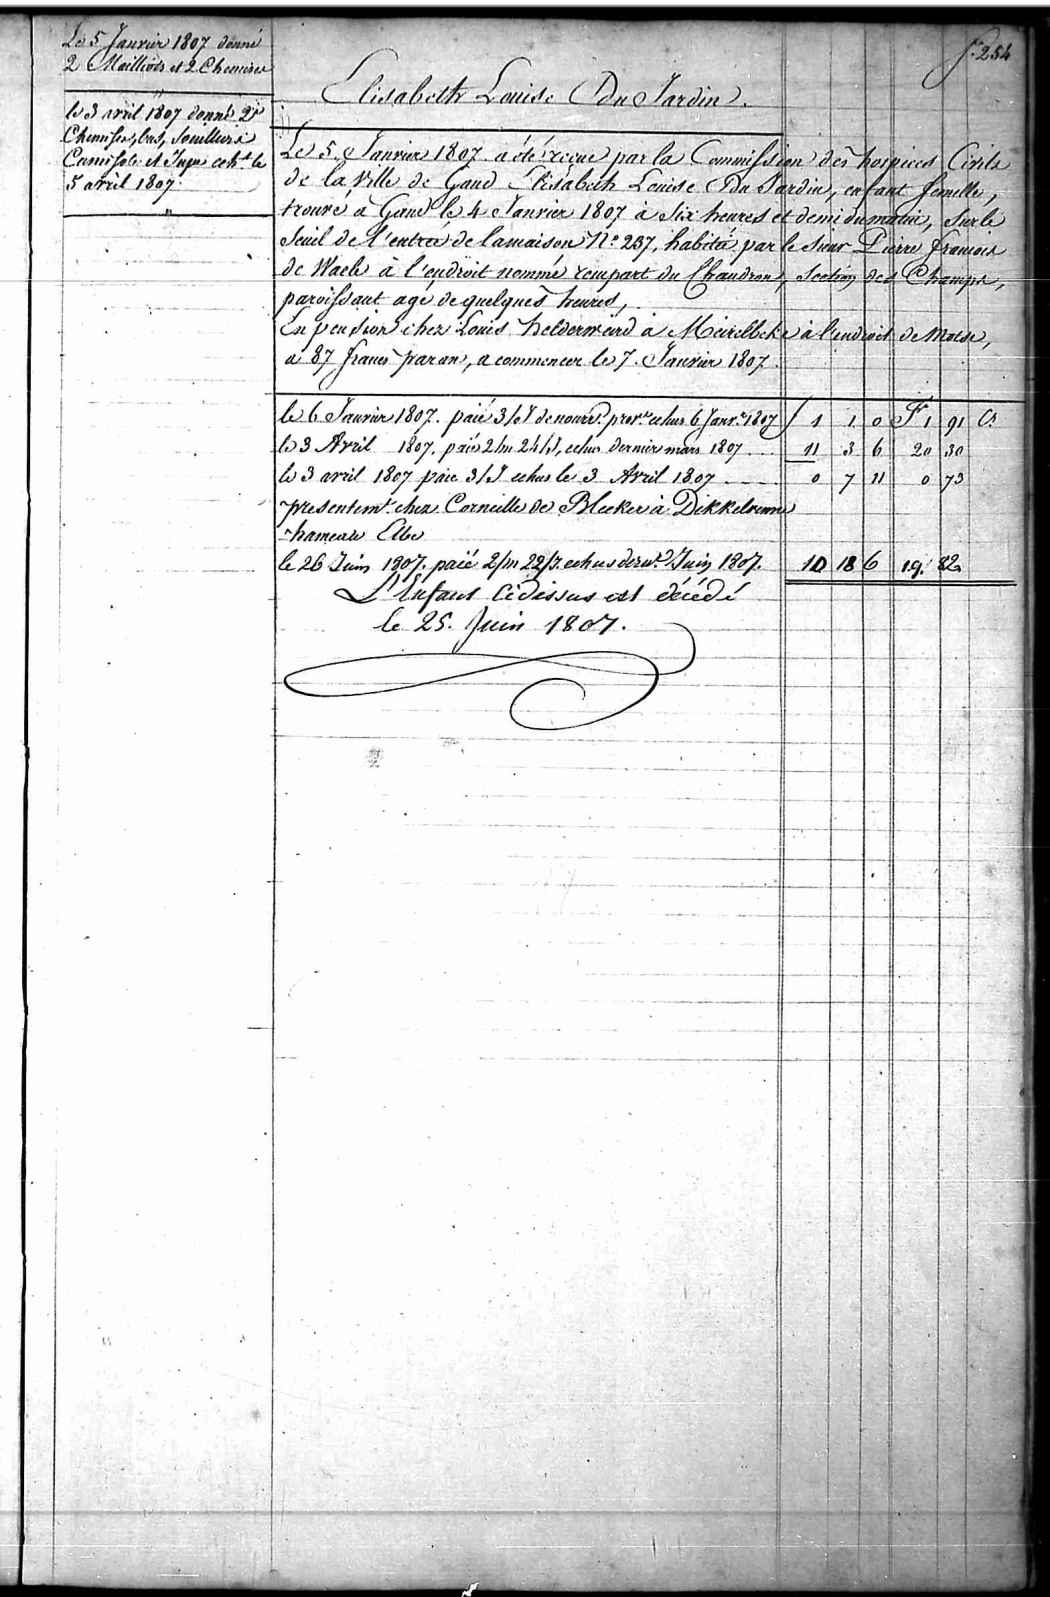 f. 254
Le 5 Janvier 1807 donné
2 Maillots et 2 Chemises
le 3 avril 1807 donné 2
Chemises, bas, Souilliers
Camisole et Jupe ech.t le
5 avril 1807.
Elisabeth Louise Du Jardin.
Le 5. Janvier 1807 a été reçue par la Commission des hospices Civils
de la Ville de Gand Elisabeth Louise Du Jardin, enfant femelle,
trouvé à Gand le 4 Janvier 1807 à Six heures et demi du matin, Sur le
Seuil de l'entrée de la maison N.o 237, habitá par le Sieur Pierre francois
de Waele à l'endroit nommé rempart du Chaudron, Section des Champs,
paroissant agé de quelques heures,
En pension chez Louis helderweird à Meirelbeke à l'endroit de Molse,
a 87 francs par an, a commencer le 7. Janvier 1807.
le 6 Janvier 1807. paié 3/J de nourr.e prov.re echus 6 Janv.r 1807 ʃ 1 1 0 F 1 91 C.
le 3 Avril 1807. paié 2/m 24/J, echus dernier mars 1807 11 3 6 20 30
le 3 avril 1807 paié 3/J echus le 3 Avril 1807 0 7 11 0 73
presentem.t chez Corneille de Bleeker à Dikkelvenne
hameau Elbe
le 26 Juin 1807. paié 2/m 22/J. echus dern.r Juin 1807. 10 18 6 19. 82
L'Enfant Cidessus est décédé
le 25. Juin 1807.